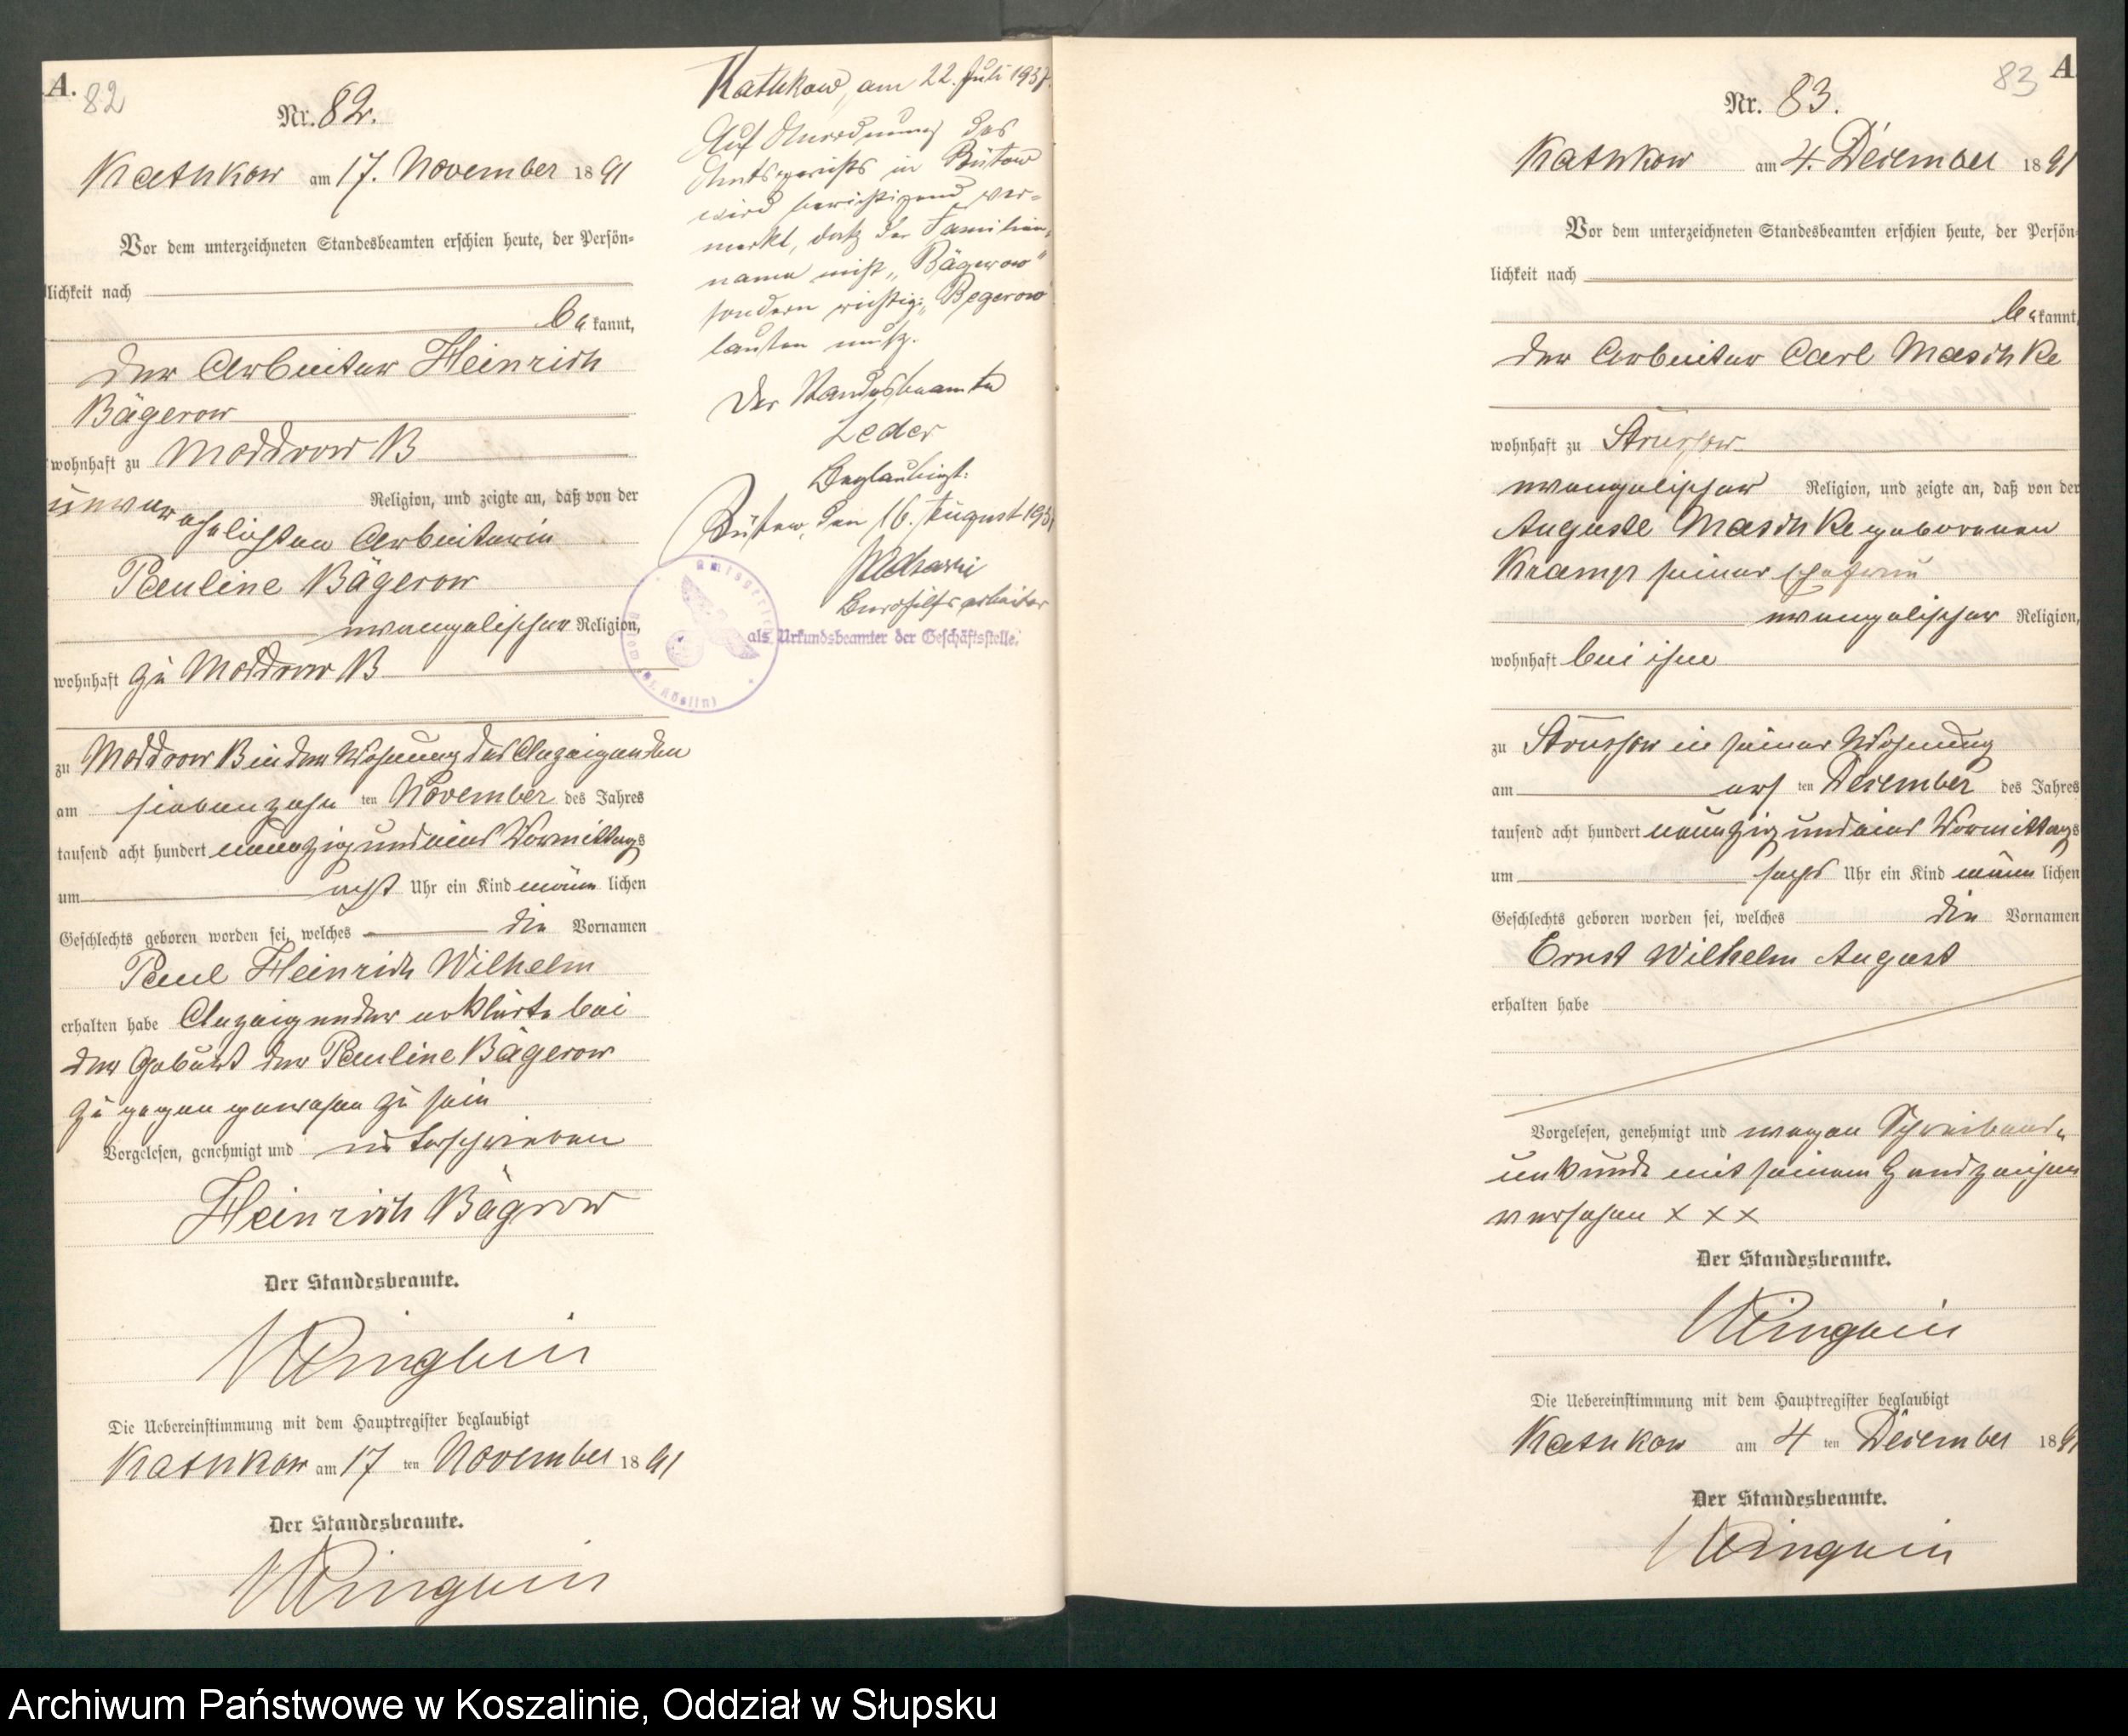 A.
82
Nr. 82.
Kathkow am 17. November 1891
Vor dem unterzeichneten Standesbeamten erschien heute, der Persön-
lichkeit nach
be kannt,
der Arbeiter Heinrich
Bägerow
wohnhaft zu Moddrow B
unver Religion, und zeigte an, daß von der
ehelichten Arbeiterin
Pauline Bägerow
evangelischer Religion,
wohnhaft zu Moddrow B
zu Moddrow B in der Wohnung des Anzeigenden
am siebenzehn ten November des Jahres
tausend acht hundert neunzig und eins Vormittags
um acht Uhr ein Kind männ lichen
Geschlechts geboren worden sei, welches die Vornamen
Paul Heinrich Wilhelm
erhalten habe Anzeigender erklärte bei
der Geburt der Pauline Bägerow
zu gegen gewesen zu sein
Vorgelesen, genehmigt und unterschrieben
Heinrich Bägrow
Der Standesbeamte.
Die Uebereinstimmung mit dem Hauptregister beglaubigt
Kathkow am 17 ten November 1891
Der Standesbeamte.
Kathkow, am 22. Juli 1937.
Auf Anordnung des
Amtsgerichts in Bütow
wird berichtigend ver-
merkt, daß der Familien-
name nicht „Bägerow“
sondern richtig: „Begerow
lauten muß.
Der Standesbeamte
Leder
Beglaubigt:
Bütow, den 16. August 193
Bürohilfsarbeiter
als Urkundsbeamter der Geschäftsstelle.
Amtsgericht
Bütow (Bz. Köslin)
83
A
Nr. 83.
Kathkow am 4. Dezember 1891
Vor dem unterzeichneten Standesbeamten erschien heute, der Persön
lichkeit nach
be kannt,
der Arbeiter Carl Maschke
wohnhaft zu Strussow
evangelischer Religion, und zeigte an, daß von der
Auguste Maschke geborenen
Kramp seiner Ehefrau
evangelischer Religion,
wohnhaft bei ihm
zu Strussow in seiner Wohnung
am ers ten Dezember des Jahres
tausend acht hundert neunzig und eins Vormittags
um sechs Uhr ein Kind männ lichen
Geschlechts geboren worden sei, welches die Vornamen
Ernst Wilhelm August
erhalten habe
Vorgelesen, genehmigt und wegen Schreibens
unkunde mit seinem Handzeichen
versehen x x x
Der Standesbeamte.
Die Uebereinstimmung mit dem Hauptregister beglaubigt
Kathkow am 4 ten Dezember 1891
Der Standesbeamte.
Archiwum Państwowe w Koszalinie, Oddział w Słupsku